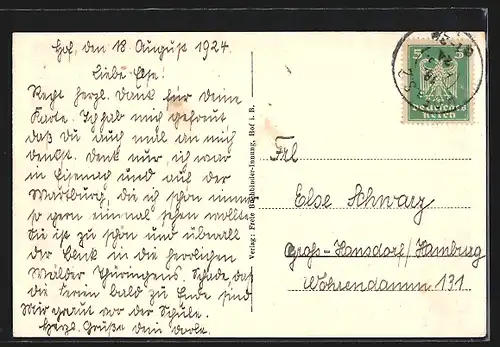 Hof, den 18. August 1924.
Liebe Else!
Recht herzl. Dank für deine
Karte. Ich hab mich gefreut
daß du auch mal an mich
denkst. Denk nur, ich war
in Eisenach und auf der
Wartburg, die ich schon immer
so gern einmal sehen wollte.
Sie ist zu schön und überall
der Blick in die herrlichen
Wälder Thüringens. Schade, daß
die Ferien bald zu Ende sind
Mir graut vor der Schule.
Herzl. Grüße dein
Verlag: Freie Buchbinder-Innung, Hof i. B.
5 5
Deutsches
Reich
Frl
Else Schwarz
Groß-Hansdorf/Hamburg
Wöhrendamm 131